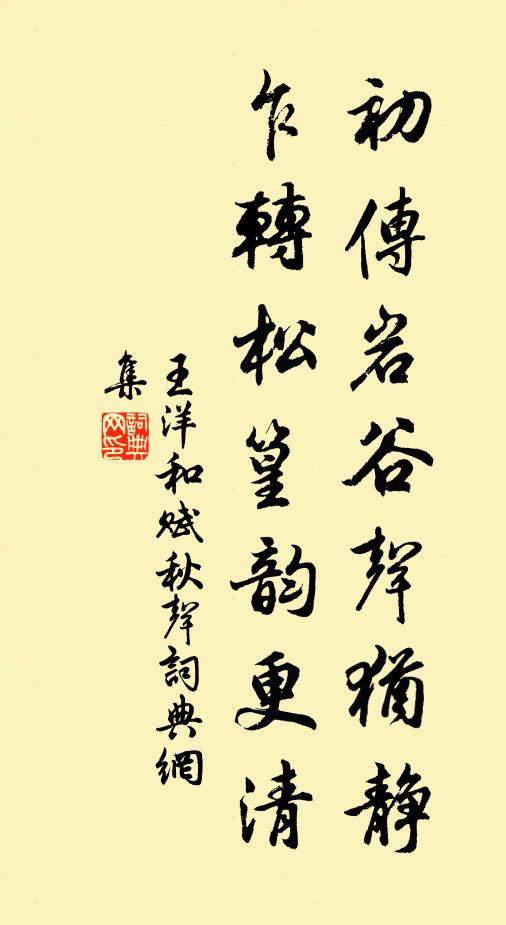 初傳岩谷聲猶静
乍轉松篁韵更清
王洋和賦秋聲詞典網
集
詞典網印